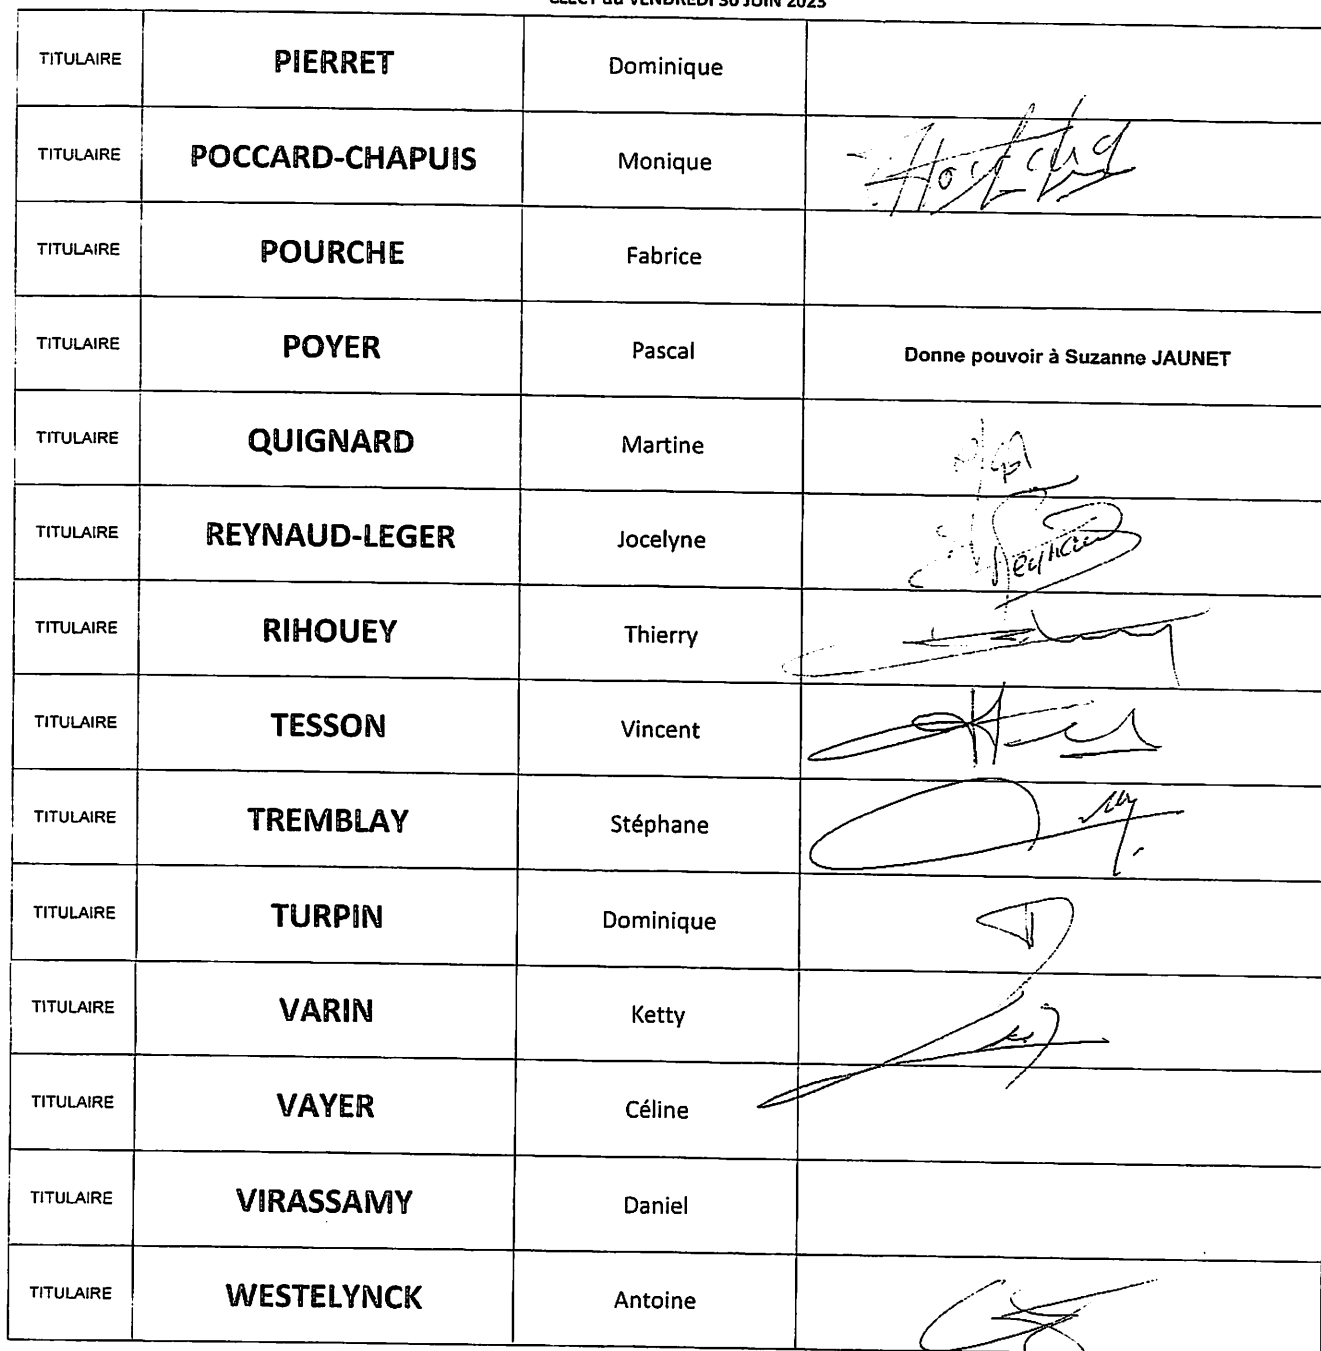 CLECT du VENDREDI 30 JUIN 2023
TITULAIRE PIERRET Dominique
TITULAIRE POCCARD-CHAPUIS Monique
TITULAIRE POURCHE Fabrice
TITULAIRE POYER Pascal Donne pouvoir à Suzanne JAUNET
TITULAIRE QUIGNARD Martine
TITULAIRE REYNAUD-LEGER Jocelyne
TITULAIRE RIHOUEY Thierry
TITULAIRE TESSON Vincent
TITULAIRE TREMBLAY Stéphane
TITULAIRE TURPIN Dominique
TITULAIRE VARIN Ketty
TITULAIRE VAYER Céline
TITULAIRE VIRASSAMY Daniel
TITULAIRE WESTELYNCK Antoine